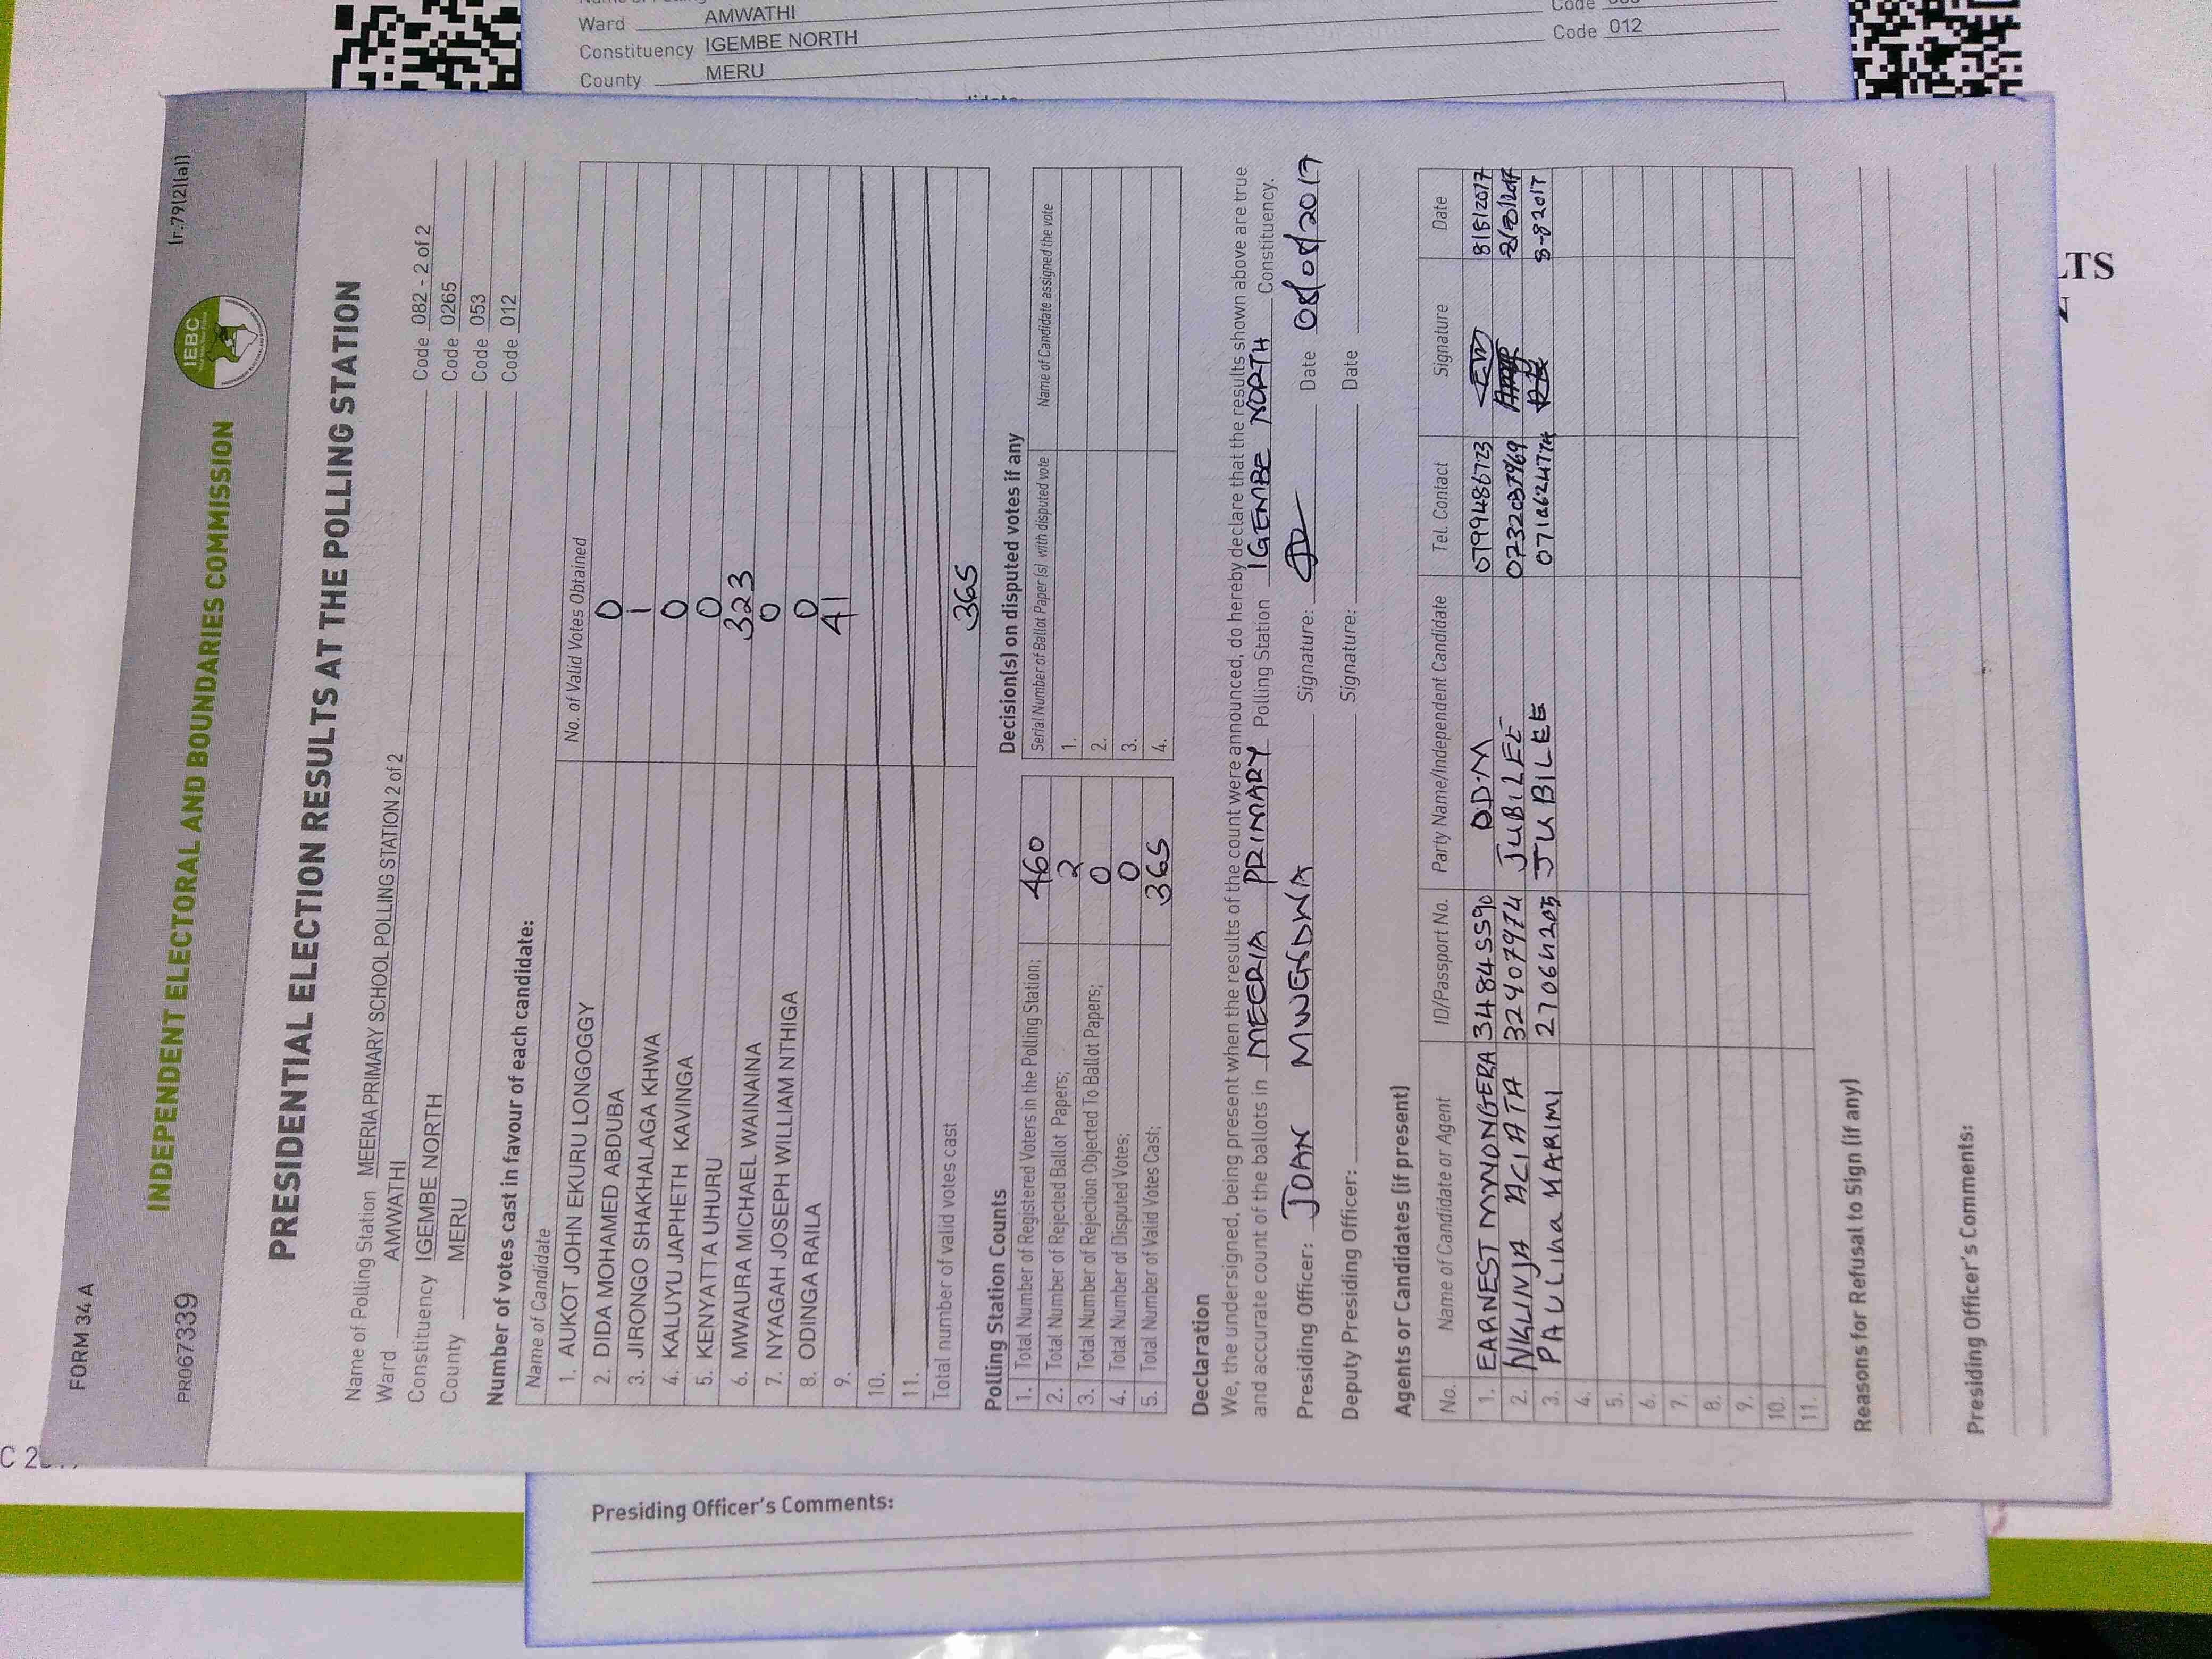 Ward AMWATHI
Constituency IGEMBE NORTH Code 012
County MERU
FORM 34 A
(r.79(2)(a))
PR067339
INDEPENDENT ELECTORAL AND BOUNDARIES COMMISSION
IEBC
PRESIDENTIAL ELECTION RESULTS AT THE POLLING STATION
Name of Polling Station MEERIA PRIMARY SCHOOL POLLING STATION 2 of 2 Code 082 - 2 of 2
Ward AMWATHI Code 0265
Constituency IGEMBE NORTH Code 053
County MERU Code 012
Number of votes cast in favour of each candidate:
Name of Candidate No. of Valid Votes Obtained
1. AUKOT JOHN EKURU LONGOGGY 0
2. DIDA MOHAMED ABDUBA 1
3. JIRONGO SHAKHALAGA KHWA 0
4. KALUYU JAPHETH KAVINGA 0
5. KENYATTA UHURU 323
6. MWAURA MICHAEL WAINAINA 0
7. NYAGAH JOSEPH WILLIAM NTHIGA 0
8. ODINGA RAILA 41
9.
10.
11.
Total number of valid votes cast 365
Polling Station Counts
1. Total Number of Registered Voters in the Polling Station; 460
2. Total Number of Rejected Ballot Papers; 2
3. Total Number of Rejection Objected To Ballot Papers; 0
4. Total Number of Disputed Votes; 0
5. Total Number of Valid Votes Cast; 365
Decision(s) on disputed votes if any
Serial Number of Ballot Paper (s) with disputed vote Name of Candidate assigned the vote
1.
2.
3.
4.
Declaration
We, the undersigned, being present when the results of the count were announced, do hereby declare that the results shown above are true
and accurate count of the ballots in MEERIA PRIMARY Polling Station IGEMBE NORTH Constituency.
Presiding Officer: JOAN MWENDWA Signature: Date 08/08/2017
Deputy Presiding Officer: Signature: Date
Agents or Candidates (if present)
No. Name of Candidate or Agent ID/Passport No. Party Name/Independent Candidate Tel. Contact Signature Date
1. EARNEST MWONGERA 34845590 O.D.M 0799486723 8/8/2017
2. ACIATA 32407974 JUBILEE 0732037969
3. PAULINA KARIMI JUBILEE 8-8-2017
4.
5.
6.
7.
8.
9.
10.
11.
Reasons for Refusal to Sign (if any)
Presiding Officer's Comments:
Presiding Officer's Comments:
LTS